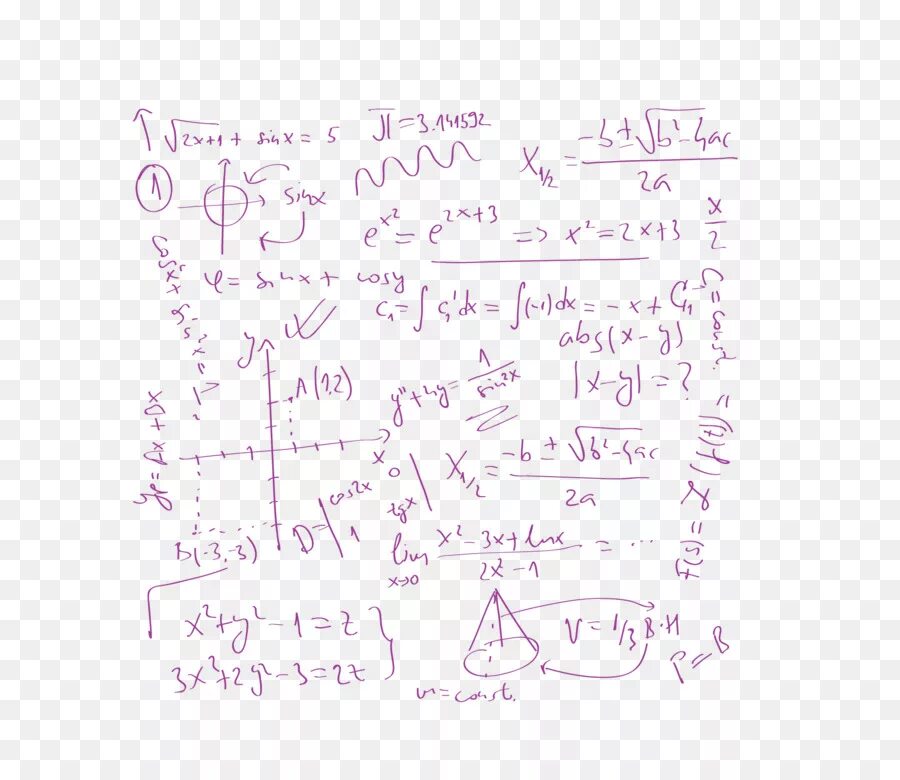 √2x+1 + sinx = 5
π = 3.141592
x₁/₂ = (-b ± √b²-4ac) / 2a
1
sinx
eˣ² = e²ˣ⁺³ => x² = 2x+3
x/2
φ = sinx + cosy
C₁ = ∫ C₁' dx = ∫(-1)dx = -x + C₁
abs(x-y)
|x-y| = ?
y
A(1,2)
y'' + 4y = 1/sin²x
x
x₁/₂ = (-b ± √b²-4ac) / 2a
D = | cos2x 0
1 tgx |
B(-3,-3)
lim x→0 (x² - 3x + lnx) / (2x² - 1) = ...
x² + y² - 1 = z
3x² + 2y² - 3 = 2z
V = 1/3 B·H
P = B
m = const.